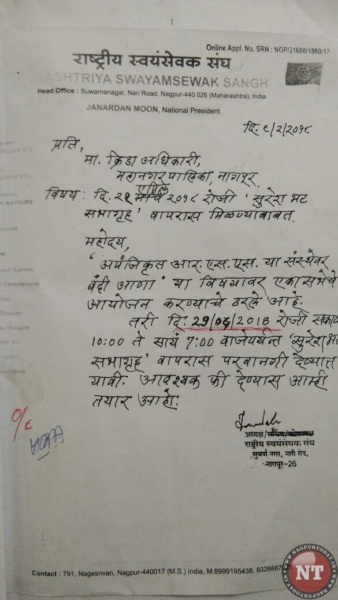 1
Online Appl. No. SRN : NGP/21606/1860/17
राष्ट्रीय स्वयंसेवक संघ
RASHTRIYA SWAYAMSEWAK SANGH
Head Office : Suwarnanagar, Nari Road, Nagpur-440 026 (Maharashtra), India
JANARDAN MOON, National President
दि. ८/२/२०१८
प्रति,
मा. क्रिडा अधिकारी,
महानगरपालिका, नागपूर.
एप्रिल
विषय: दि. २९ २०१८ रोजी 'सुरेश भट
सभागृह' वापरास मिळण्याबाबत.
महोदय,
'अपंजिकृत आर.एस.एस. या संस्थेवर
बंदी आणा' या विषयावर एका सभेचे
आयोजन करण्याचे ठरले आहे.
तरी दि. 29/04/2018 रोजी सकाळ
10:00 ते सायं 7:00 वाजेपर्यंत 'सुरेश भट
सभागृह' वापरास परवानगी देण्यात
यावी. आवश्यक फी देण्यास आम्ही
तयार आहो.
अध्यक्ष
राष्ट्रीय स्वयंसेवक संघ
सुवर्ण नगर, नारी रोड,
नागपूर-26
o/c
Contact : 791, Nageshvan, Nagpur-440017 (M.S.) india, M.8999195438, 9326887
NT
NAGPUR TODAY